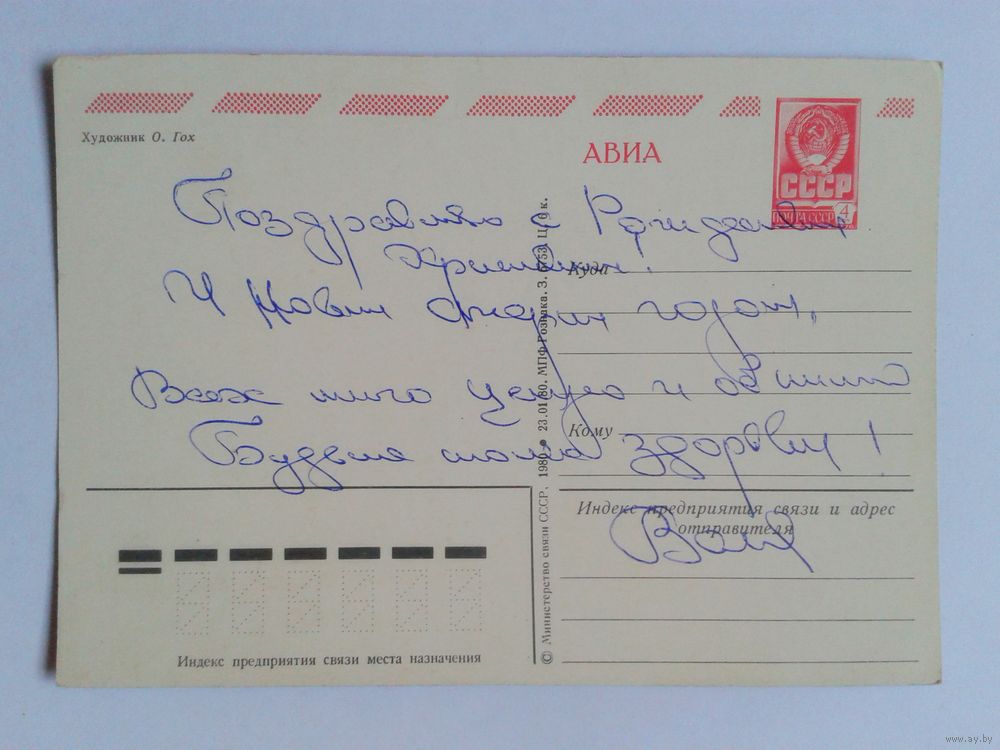 Художник О. Гох
АВИА
СССР
ПОЧТА СССР 4
Поздравляю с Рождеством
Христовым.
И Новым годом.
Всех
Будьте здоровы!
Ваш
Куда
Кому
Индекс предприятия связи и адрес
отправителя
Индекс предприятия связи места назначения
© Министерство связи СССР. 1980 23.01.80. МПФ Гознака. З. Ц. к.
www.ay.by